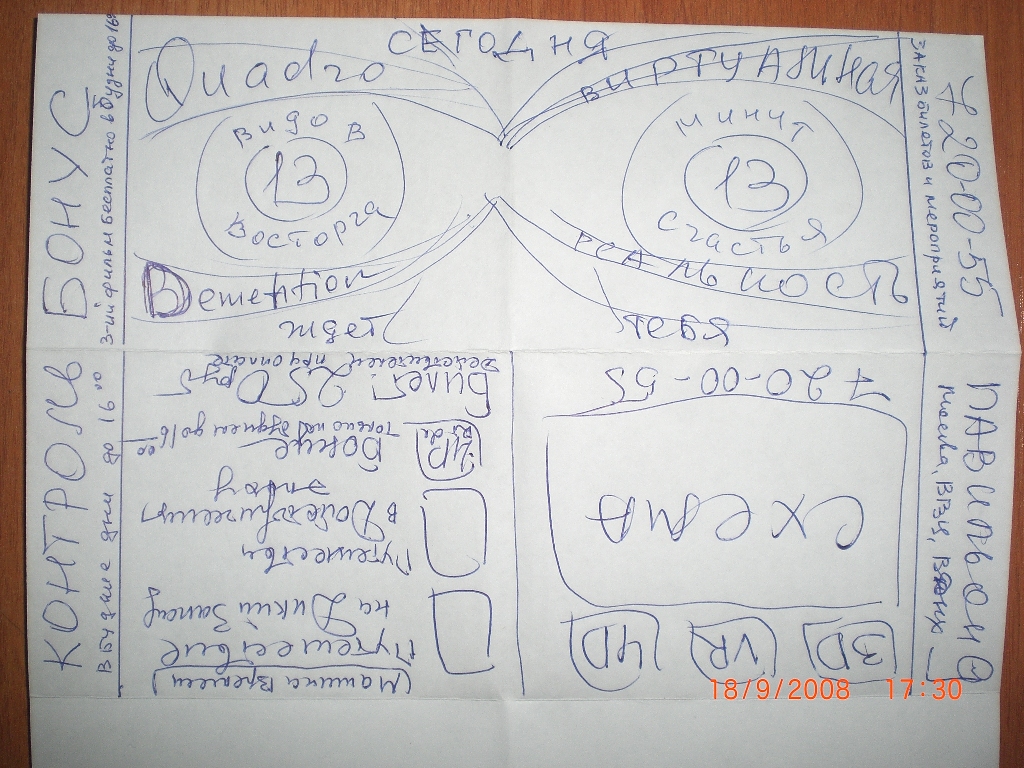 СЕГОДНЯ
Quadro
ВИРТУАЛЬНАЯ
ВИДО В
13
Восторга
МИНУТ
13
СЧАСТЬЯ
Dетеnцion
РЕАЛЬНОСТЬ
ждет
тебя
БОНУС
3-ий фильм Бесплатно в Будни до 16
КОНТРОЛЬ
В Будние дни до 16 00
7 20-00-55
ЗАКАЗ билетов и мероприятий
ПАВИЛЬОН
Москва, ВВЦ,
(Машина Времени)
Путешествие
на Дикий Запад
Путешествие
в Доисторическую
эпоху
4D
Больше
Только по будням до 16 00
Билет: 250 руб
действителен при оплате
3D
VR
4D
СХЕМА
720-00-55
18/9/2008 17:30